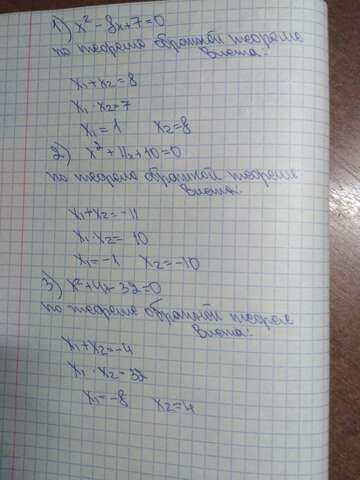 1) x² - 8x+7=0
по теореме обратной теореме
Виета:
x₁+x₂=8
x₁·x₂=7
x₁=1 x₂=8
2) x²+11x+10=0
по теореме обратной теореме
Виета:
x₁+x₂=-11
x₁·x₂= 10
x₁=-1 x₂=-10
3) x²+4x-32=0
по теореме обратной теореме
Виета:
x₁+x₂=-4
x₁·x₂=-32
x₁=-8 x₂=4